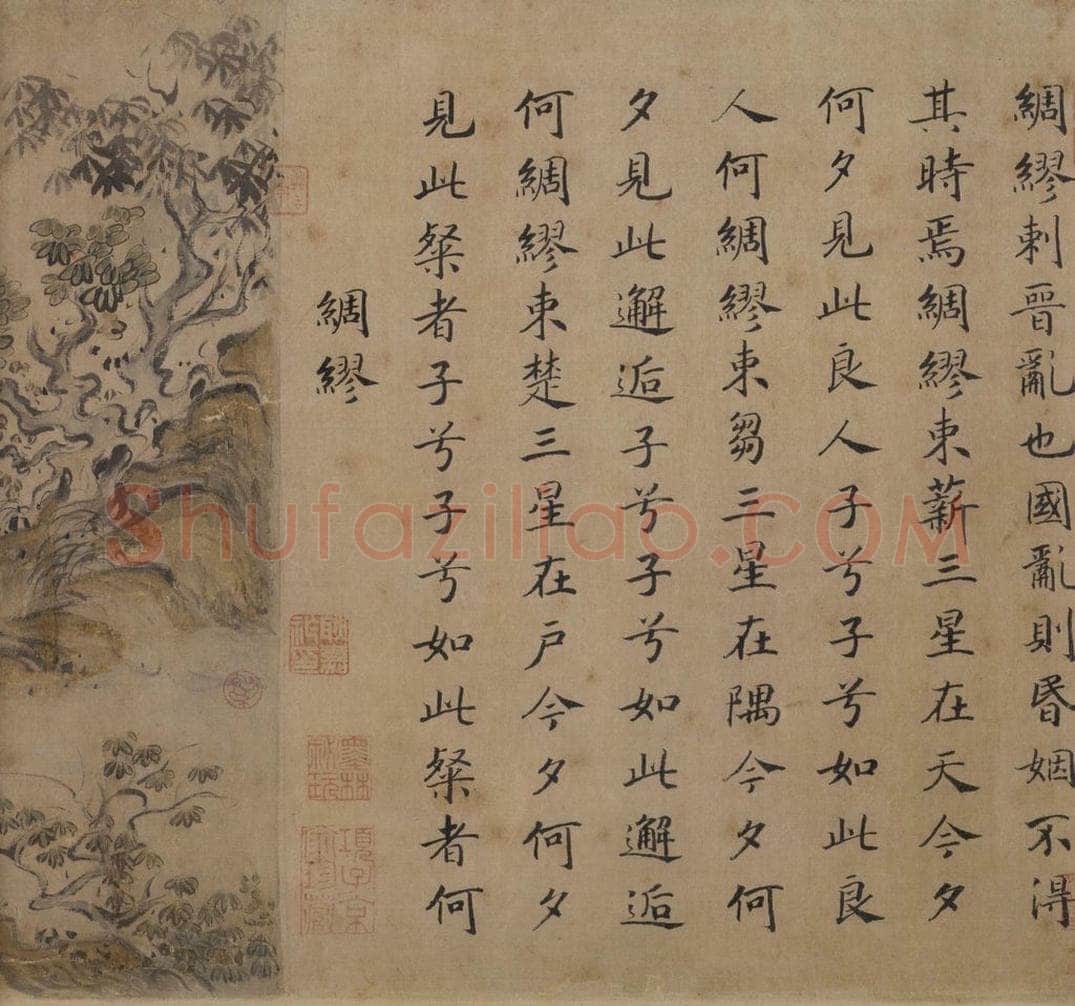 綢繆刺晉亂也國亂則昏姻不得
其時焉綢繆束薪三星在天今夕
何夕見此良人子兮子兮如此良
人何綢繆束芻三星在隅今夕何
夕見此邂逅子兮子兮如此邂逅
何綢繆束楚三星在戶今夕何夕
見此粲者子兮子兮如此粲者何
綢繆
墨林秘玩
項子京家珍藏
Shufaziliao.COM